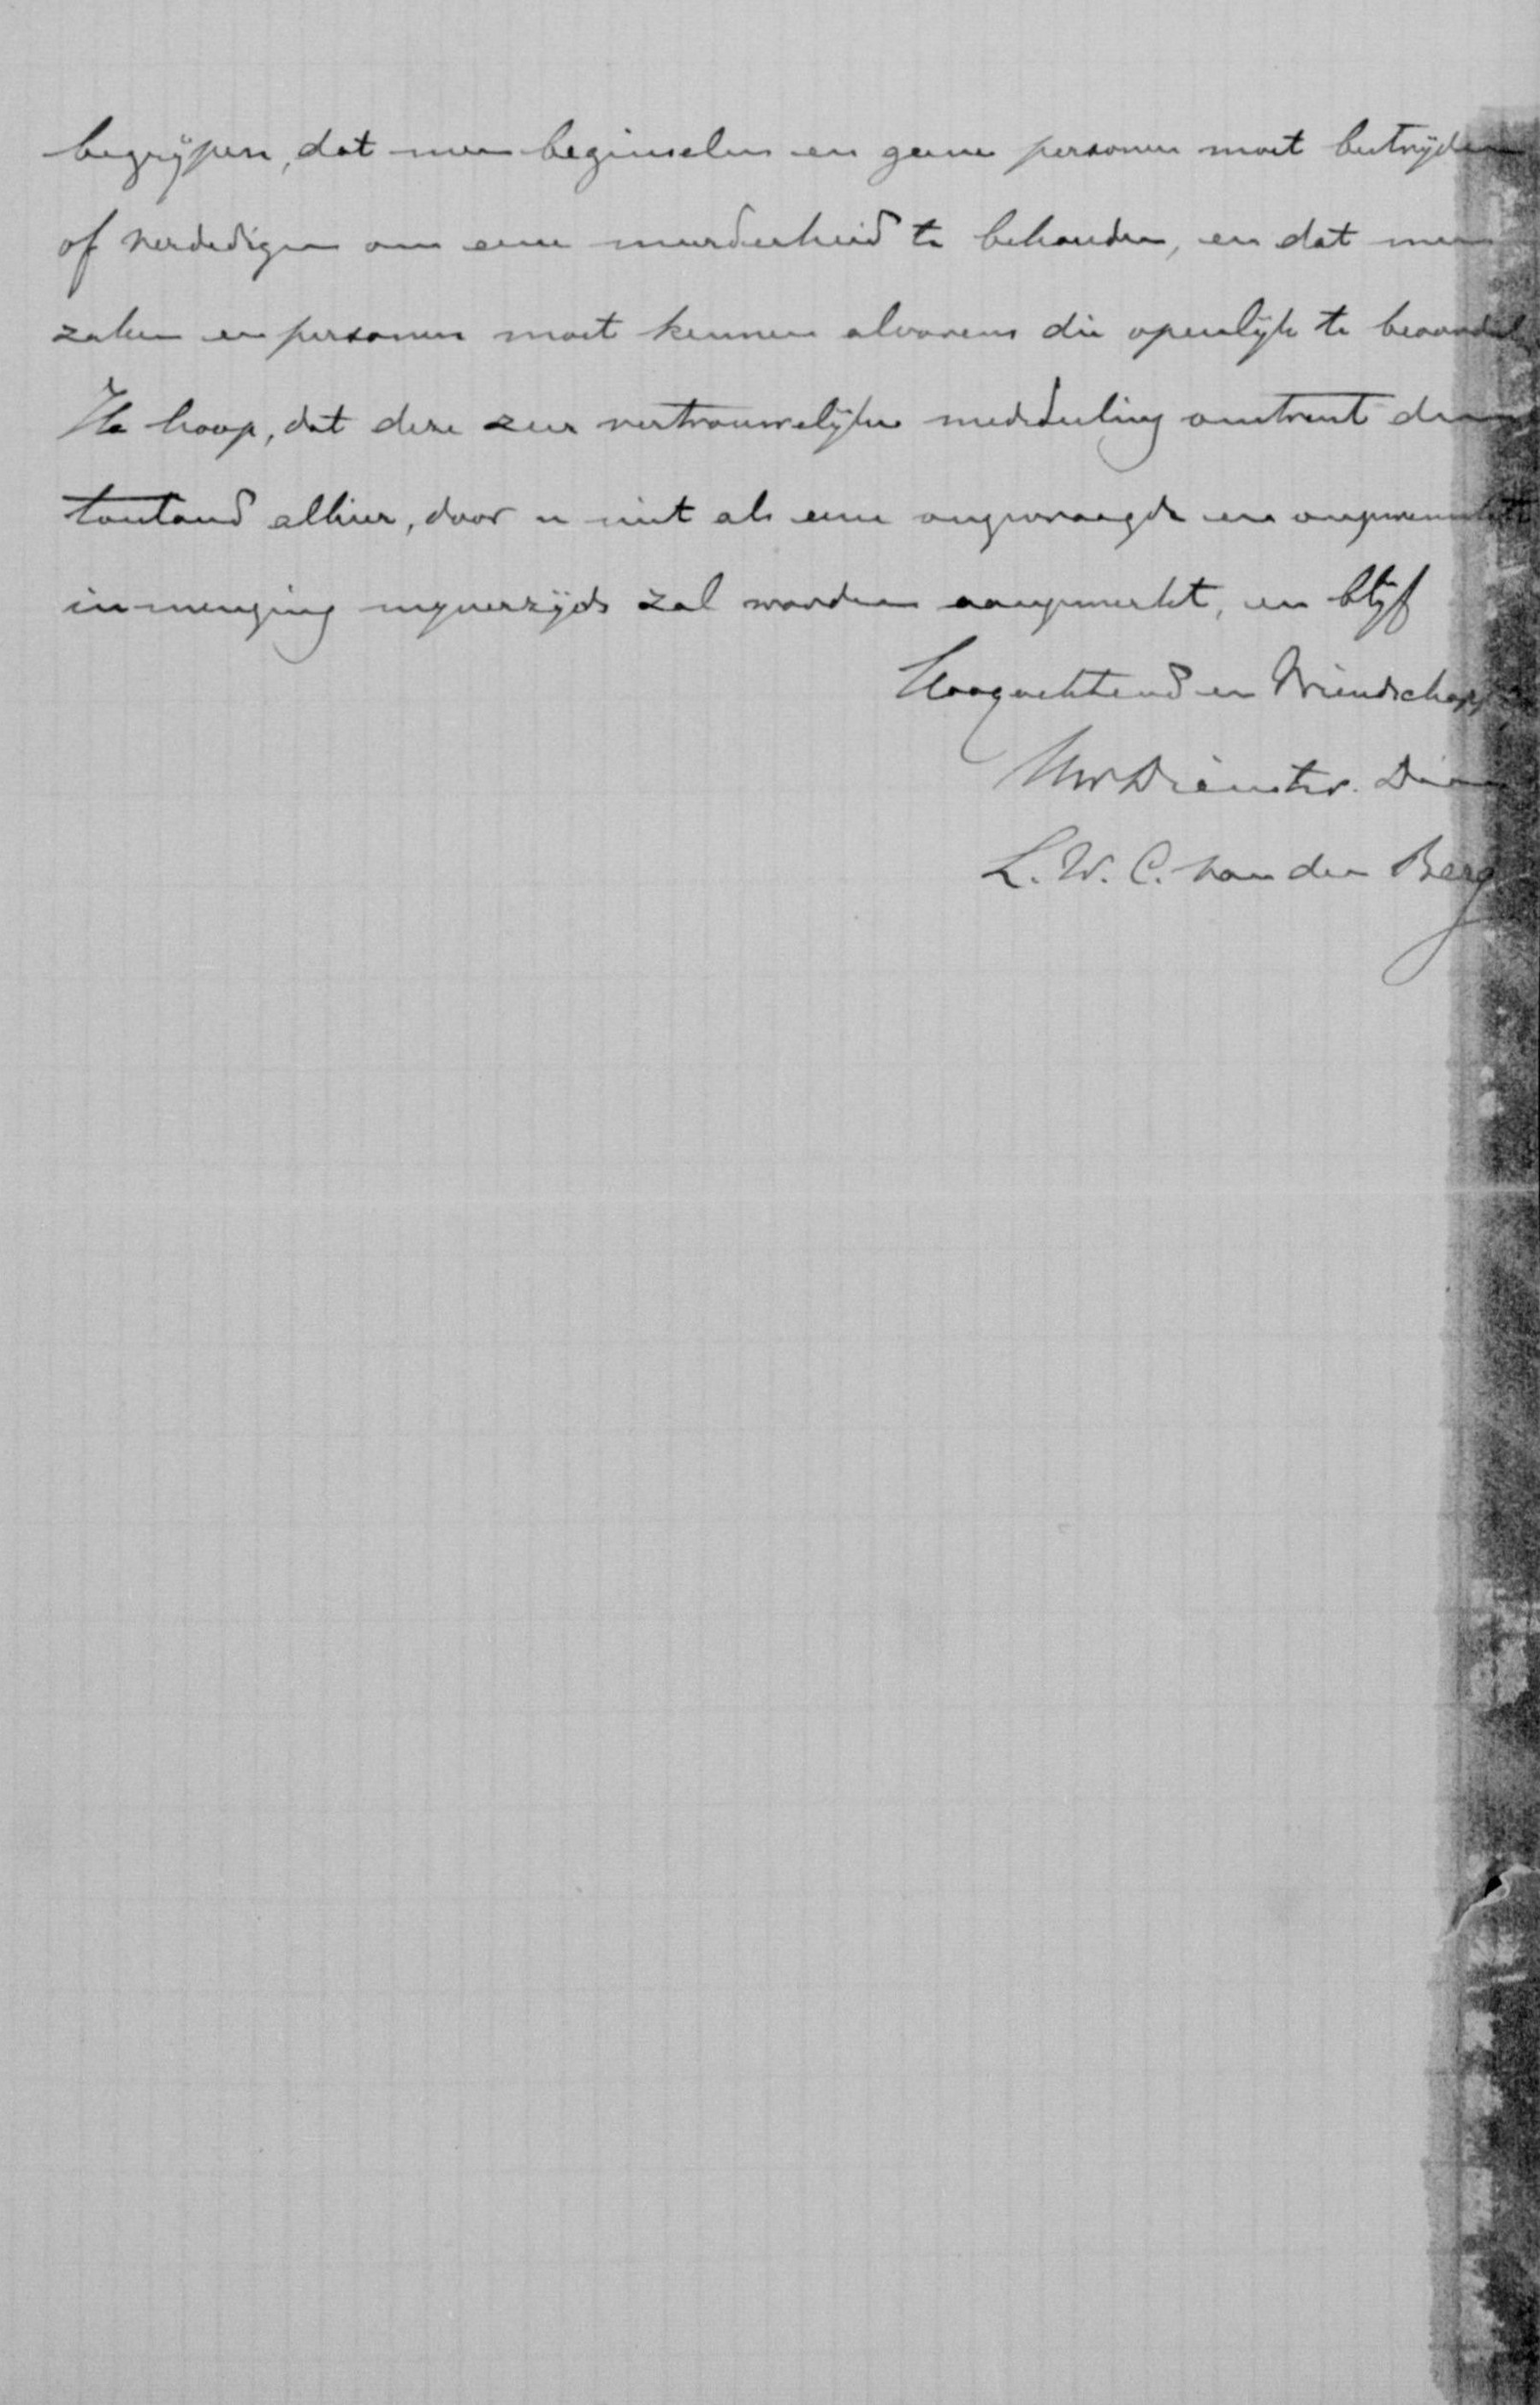 begrijpen, dat men beginselen en geene personen moet bestrijden
of verdedigen om eene meerderheid te behouden, en dat men
zaken en personen moet kennen alvorens die openlijk te beoordeel
Ik hoop, dat deze zeer vertrouwelijke mededeeling omtrent den
toestand alhier, door u niet als eene ongevraagde en ongewenschte
inmenging mynerzijds zal worden aangemerkt, en blijf
Hoogachtend en Vriendschapp
Uw Dienstw. Dien
L. W. C. van den Berg